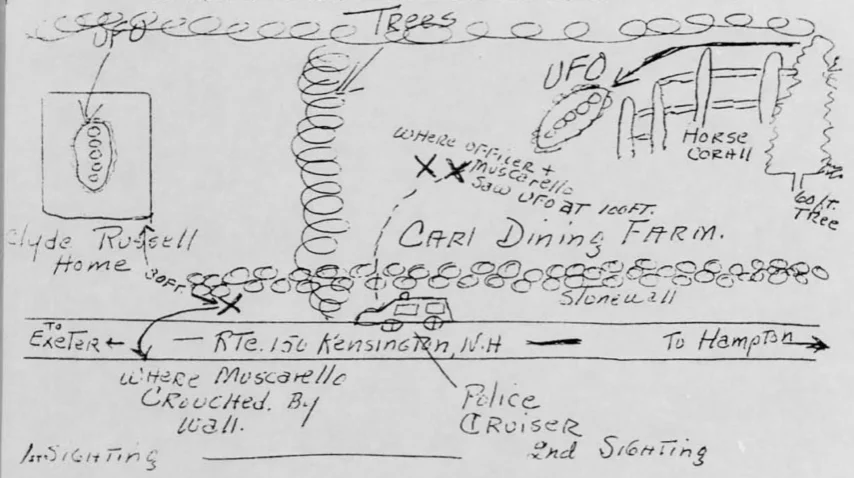 UFO
Trees
UFO
HORSE
CORAll
60 ft.
TREE
WHERE OFFICER +
Muscarello
Saw UFO AT 100FT.
CARl Dining FARM.
Clyde Russell
Home
30FT.
Stonewall
TO
EXETER ← — RTe. 150 Kensington, N.H — To Hampton →
WHERE Muscarello
CROUCHED. By
Wall.
Police
CRUISER
2nd SIGHTING
1st SIGHTING